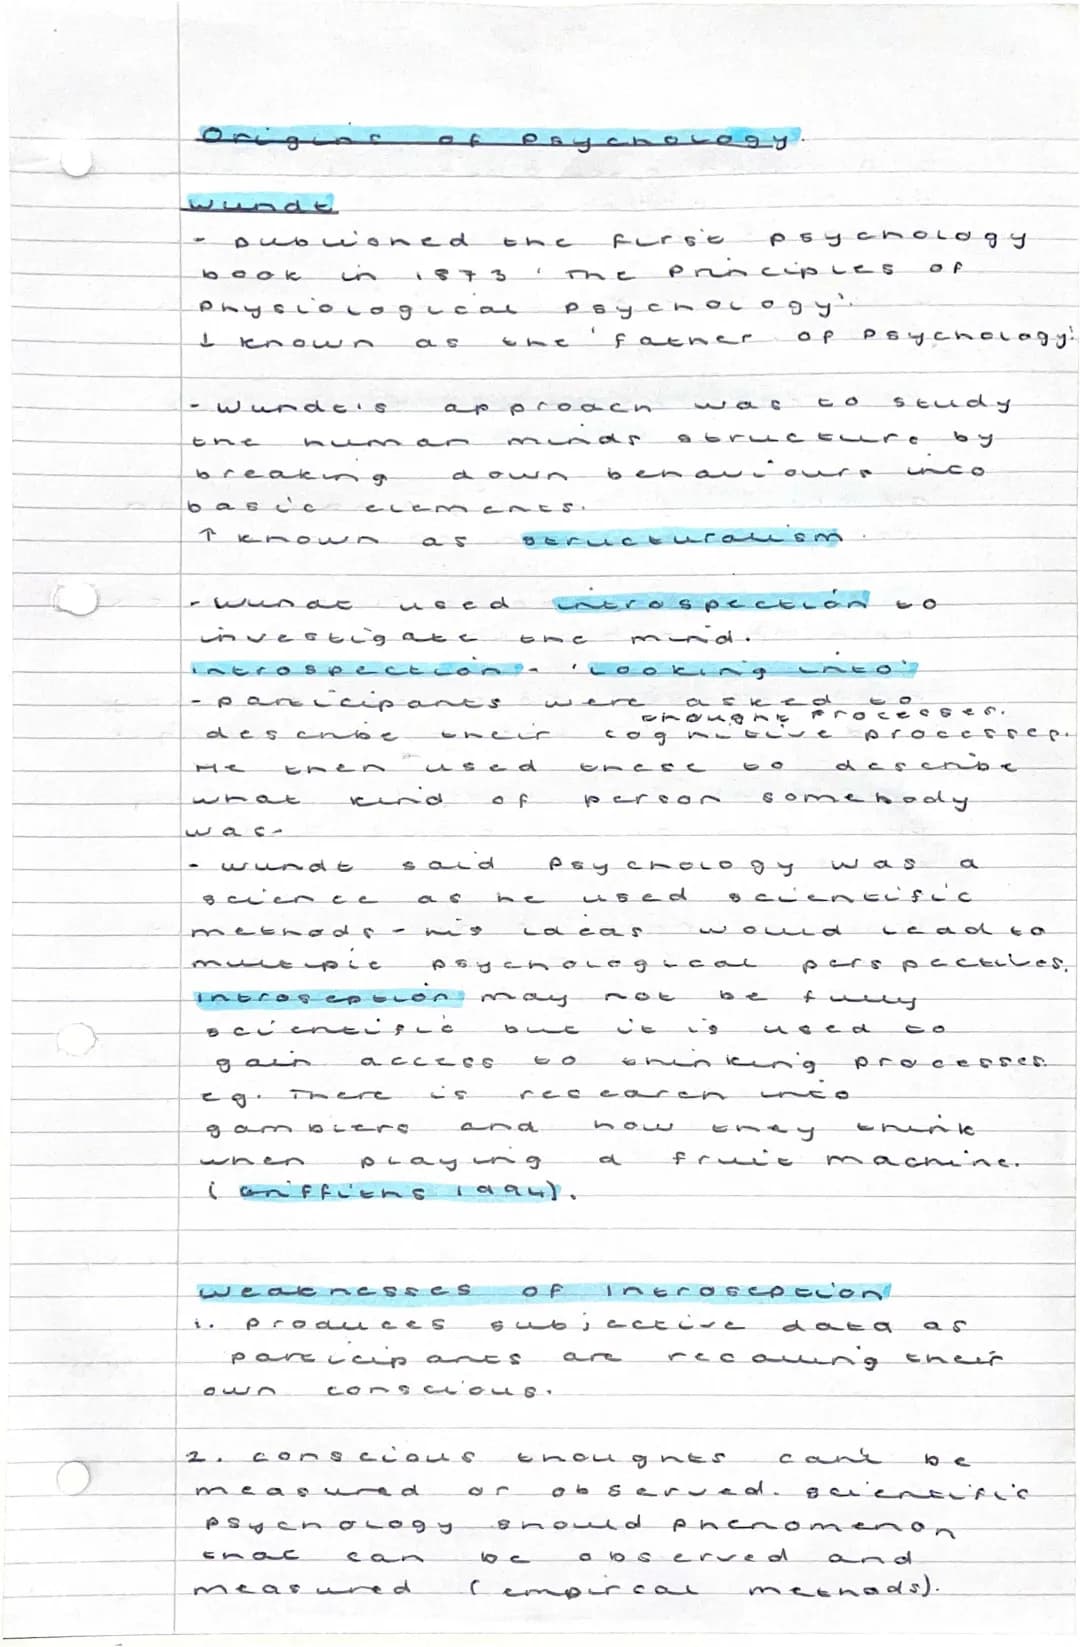 Origins of Psychology.
Wundt
- published the first psychology
book in 1873 'The Principles of
Physiological Psychology'.
↓ known as the 'father of Psychology'.
- Wundt's approach was to study
the human minds structure by
breaking down behaviours into
basic elements.
↑ known as structuralism.
- Wundt used introspection to
investigate the mind.
introspection - 'looking into'
- participants were asked to
thought processes.
describe their cognitive processes.
He then used these to describe
what kind of person somebody
was.
- Wundt said Psychology was a
science as he used scientific
methods - his ideas would lead to
multiple psychological perspectives.
introseption may not be fully
scientific but it is used to
gain access to thinking processes.
eg. There is research into
gamblers and how they think
when playing a fruit machine.
(Griffiths 1994).
Weaknesses of Introseption
1. Produces subjective data as
participants are recalling their
own conscious.
2. conscious thoughts can't be
measured or observed. scientific
psychology should phenomenon
that can be observed and
measured (empircal methods).